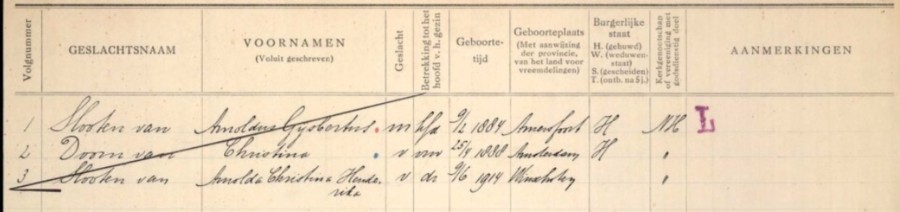 Volgnummer GESLACHTSNAAM VOORNAMEN (Voluit geschreven) Geslacht Betrekking tot het hoofd v. h. gezin Geboorte-tijd Geboorteplaats (Met aanwijzing der provincie, van het land voor vreemdelingen) Burgerlijke staat H. (gehuwd) W. (weduwen-staat) S. (gescheiden) T. (ontb. na 5 j.) Kerkgenootschap of vereeniging met godsdienstig doel AANMERKINGEN
1 Slooten van Arnoldus Gysbertus m hfd 9/2 1884 Amersfoort H NH L
2 Doorn van Christina v vrw 25/4 1888 Amsterdam H "
3 Slooten van Arnolda Christina Hende v dr 9/6 1914 Winschoten "
rika